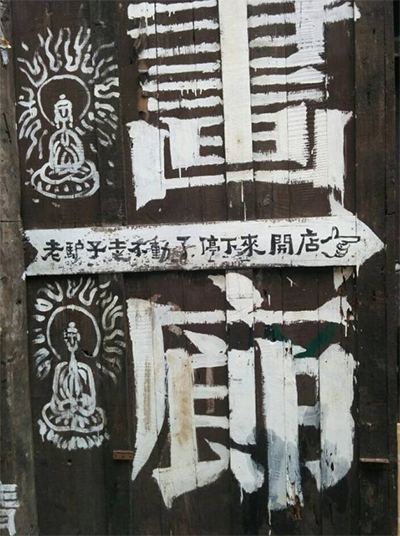 畫
老馿子走不動了停下來開店
廊